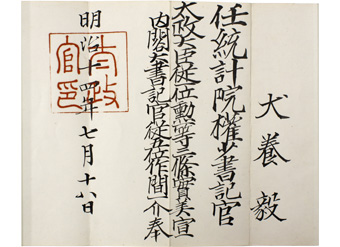 犬養毅
任統計院權少書記官
太政大臣從一位勲一等三條實美宣
内閣大書記官從五位作間一介奉
明治十四年七月十八日
太政官印